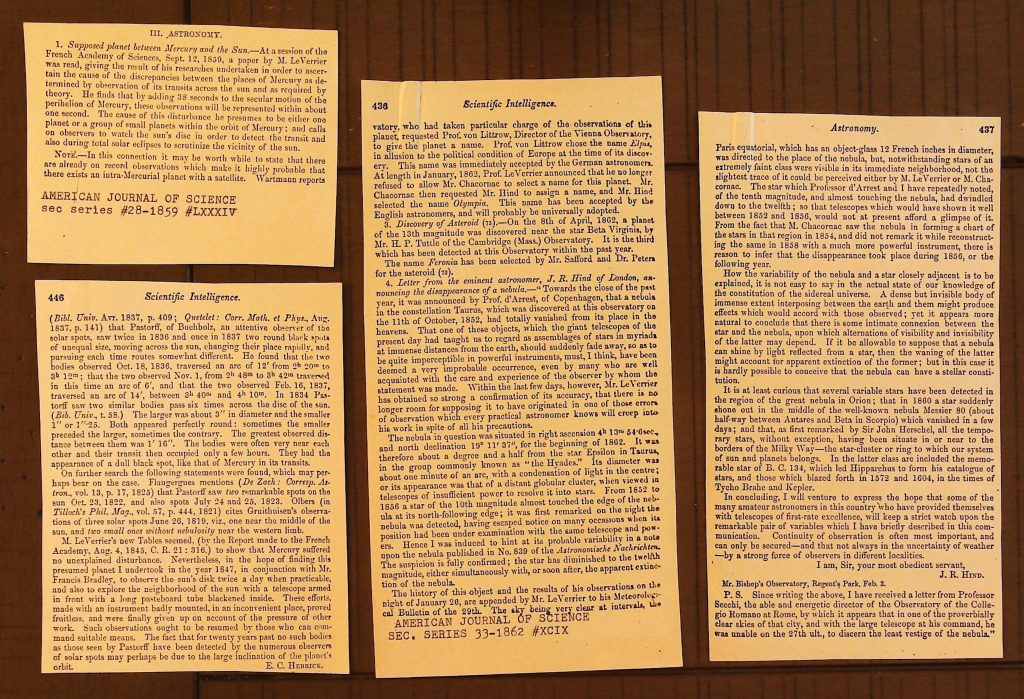 III. ASTRONOMY.
1. Supposed planet between Mercury and the Sun.—At a session of the
French Academy of Sciences, Sept. 12, 1859, a paper by M. LeVerrier
was read, giving the result of his researches undertaken in order to ascer-
tain the cause of the discrepancies between the places of Mercury as de-
termined by observation of its transits across the sun and as required by
theory. He finds that by adding 38 seconds to the secular motion of the
perihelion of Mercury, these observations will be represented within about
one second. The cause of this disturbance he presumes to be either one
planet or a group of small planets within the orbit of Mercury; and calls
on observers to watch the sun's disc in order to detect the transit and
also during total solar eclipses to scrutinize the vicinity of the sun.
NOTE.—In this connection it may be worth while to state that there
are already on record observations which make it highly probable that
there exists an intra-Mercurial planet with a satellite. Wartmann reports
AMERICAN JOURNAL OF SCIENCE
sec series #28-1859 #LXXXIV
446 Scientific Intelligence.
(Bibl. Univ. Avr. 1837, p. 409; Quetelet: Corr. Math. et Phys., Aug.
1837, p. 141) that Pastorff, of Buchholz, an attentive observer of the
solar spots, saw twice in 1836 and once in 1837 two round black spots
of unequal size, moving across the sun, changing their place rapidly, and
pursuing each time routes somewhat different. He found that the two
bodies observed Oct. 18, 1836, traversed an arc of 12′ from 2h 20m to
3h 12m; that the two observed Nov. 1, from 2h 48m to 3h 42m traversed
in this time an arc of 6′, and that the two observed Feb. 16, 1837,
traversed an arc of 14′, between 3h 40m and 4h 10m. In 1834 Pas-
torff saw two similar bodies pass six times across the disc of the sun.
(Bib. Univ., t. 58.) The larger was about 3″ in diameter and the smaller
1″ or 1″·25. Both appeared perfectly round: sometimes the smaller
preceded the larger, sometimes the contrary. The greatest observed dis-
tance between them was 1′ 16″. The bodies were often very near each
other and their transit then occupied only a few hours. They had the
appearance of a dull black spot, like that of Mercury in its transits.
On further search the following statements were found, which may per-
haps bear on the case. Flaugergues mentions (De Zach: Corresp. As-
tron., vol. 13, p. 17, 1825) that Pastorff saw two remarkable spots on the
sun Oct. 23, 1822, and also spots July 24 and 25, 1823. Olbers (in
Tilloch's Phil. Mag., vol. 57, p. 444, 1821) cites Gruithuisen's observa-
tions of three solar spots June 26, 1819, viz., one near the middle of the
sun, and two small ones without nebulosity near the western limb.
M. LeVerrier's new Tables seemed, (by the Report made to the French
Academy, Aug. 4, 1845, C. R. 21: 316.) to show that Mercury suffered
no unexplained disturbance. Nevertheless, in the hope of finding this
presumed planet I undertook in the year 1847, in conjunction with Mr.
Francis Bradley, to observe the sun's disk twice a day when practicable,
and also to explore the neighborhood of the sun with a telescope armed
in front with a long pasteboard tube blackened inside. These efforts,
made with an instrument badly mounted, in an inconvenient place, proved
fruitless, and were finally given up on account of the pressure of other
work. Such observations ought to be resumed by those who can com-
mand suitable means. The fact that for twenty years past no such bodies
as those seen by Pastorff have been detected by the numerous observers
of solar spots may perhaps be due to the large inclination of the planet's
orbit. E. C. HERRICK.
436 Scientific Intelligence.
vatory, who had taken particular charge of the observations of this
planet, requested Prof. von Littrow, Director of the Vienna Observatory,
to give the planet a name. Prof. von Littrow chose the name Elpis,
in allusion to the political condition of Europe at the time of its discov-
ery. This name was immediately accepted by the German astronomers.
At length in January, 1862, Prof. LeVerrier announced that he no longer
refused to allow Mr. Chacornac to select a name for this planet. Mr.
Chacornac then requested Mr. Hind to assign a name, and Mr. Hind
selected the name Olympia. This name has been accepted by the
English astronomers, and will probably be universally adopted.
3. Discovery of Asteroid (73).—On the 8th of April, 1862, a planet
of the 13th magnitude was discovered near the star Beta Virginis, by
Mr. H. P. Tuttle of the Cambridge (Mass.) Observatory. It is the third
which has been detected at this Observatory within the past year.
The name Feronia has been selected by Mr. Safford and Dr. Peters
for the asteroid (72).
4. Letter from the eminent astronomer, J. R. Hind of London, an-
nouncing the disappearance of a nebula.—"Towards the close of the past
year, it was announced by Prof. d'Arrest, of Copenhagen, that a nebula
in the constellation Taurus, which was discovered at this observatory on
the 11th of October, 1852, had totally vanished from its place in the
heavens. That one of these objects, which the giant telescopes of the
present day had taught us to regard as assemblages of stars in myriads
at immense distances from the earth, should suddenly fade away, so as to
be quite imperceptible in powerful instruments, must, I think, have been
deemed a very improbable occurrence, even by many who are well
acquainted with the care and experience of the observer by whom the
statement was made. Within the last few days, however, Mr. LeVerrier
has obtained so strong a confirmation of its accuracy, that there is no
longer room for supposing it to have originated in one of those errors
of observation which every practical astronomer knows will creep into
his work in spite of all his precautions.
The nebula in question was situated in right ascension 4h 13m 54·6sec.,
and north declination 19° 11′ 37″, for the beginning of 1862. It was
therefore about a degree and a half from the star Epsilon in Taurus,
in the group commonly known as "the Hyades." Its diameter was
about one minute of an arc, with a condensation of light in the centre;
or its appearance was that of a distant globular cluster, when viewed in
telescopes of insufficient power to resolve it into stars. From 1852 to
1856 a star of the 10th magnitude almost touched the edge of the neb-
ula at its north-following edge; it was first remarked on the night the
nebula was detected, having escaped notice on many occasions when its
position had been under examination with the same telescope and pow-
ers. Hence I was induced to hint at its probable variability in a note
upon the nebula published in No. 839 of the Astronomische Nachrichten.
The suspicion is fully confirmed; the star has diminished to the twelfth
magnitude, either simultaneously with, or soon after, the apparent extinc-
tion of the nebula.
The history of this object and the results of his observations on the
night of January 26, are appended by Mr. LeVerrier to his Meteorologi-
cal Bulletin of the 29th. The sky being very clear at intervals, the
AMERICAN JOURNAL OF SCIENCE
SEC. SERIES 33-1862 #XCIX
Astronomy. 437
Paris equatorial, which has an object-glass 12 French inches in diameter,
was directed to the place of the nebula, but, notwithstanding stars of an
extremely faint class were visible in its immediate neighborhood, not the
slightest trace of it could be perceived either by M. LeVerrier or M. Cha-
cornac. The star which Professor d'Arrest and I have repeatedly noted,
of the tenth magnitude, and almost touching the nebula, had dwindled
down to the twelfth; so that telescopes which would have shown it well
between 1852 and 1856, would not at present afford a glimpse of it.
From the fact that M. Chacornac saw the nebula in forming a chart of
the stars in that region in 1854, and did not remark it while reconstruct-
ing the same in 1858 with a much more powerful instrument, there is
reason to infer that the disappearance took place during 1856, or the
following year.
How the variability of the nebula and a star closely adjacent is to be
explained, it is not easy to say in the actual state of our knowledge of
the constitution of the sidereal universe. A dense but invisible body of
immense extent interposing between the earth and them might produce
effects which would accord with those observed; yet it appears more
natural to conclude that there is some intimate connection between the
star and the nebula, upon which alternations of visibility and invisibility
of the latter may depend. If it be allowable to suppose that a nebula
can shine by light reflected from a star, then the waning of the latter
might account for apparent extinction of the former; but in this case it
is hardly possible to conceive that the nebula can have a stellar consti-
tution.
It is at least curious that several variable stars have been detected in
the region of the great nebula in Orion; that in 1860 a star suddenly
shone out in the middle of the well-known nebula Messier 80 (about
half-way between Antares and Beta in Scorpio) which vanished in a few
days; and that, as first remarked by Sir John Herschel, all the tempo-
rary stars, without exception, having been situate in or near to the
borders of the Milky Way—the star-cluster or ring to which our system
of sun and planets belongs. In the latter class are included the memo-
rable star of B. C. 134, which led Hipparchus to form his catalogue of
stars, and those which blazed forth in 1572 and 1604, in the times of
Tycho Brahe and Kepler.
In concluding, I will venture to express the hope that some of the
many amateur astronomers in this country who have provided themselves
with telescopes of first-rate excellence, will keep a strict watch upon the
remarkable pair of variables which I have briefly described in this com-
munication. Continuity of observation is often most important, and
can only be secured—and that not always in the uncertainty of weather
—by a strong force of observers in different localities.
I am, Sir, your most obedient servant,
J. R. HIND.
Mr. Bishop's Observatory, Regent's Park, Feb. 3.
P. S. Since writing the above, I have received a letter from Professor
Secchi, the able and energetic director of the Observatory of the Colle-
gio Romano at Rome, by which it appears that in one of the proverbially
clear skies of that city, and with the large telescope at his command, he
was unable on the 27th ult., to discern the least vestige of the nebula."